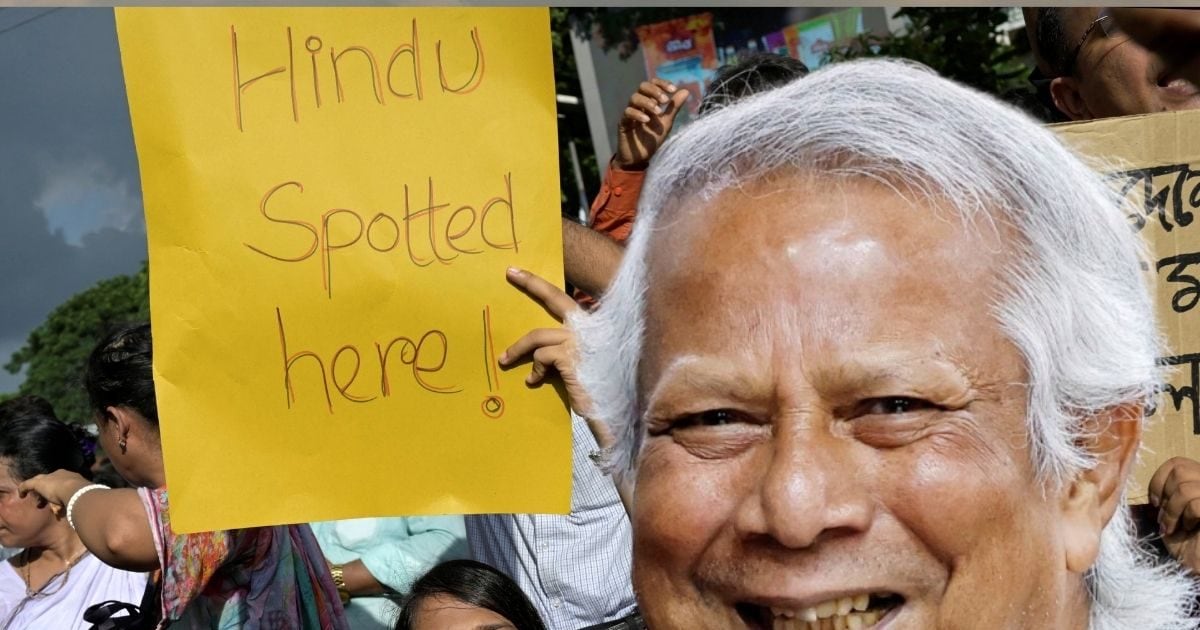 Hindu
Spotted
here!